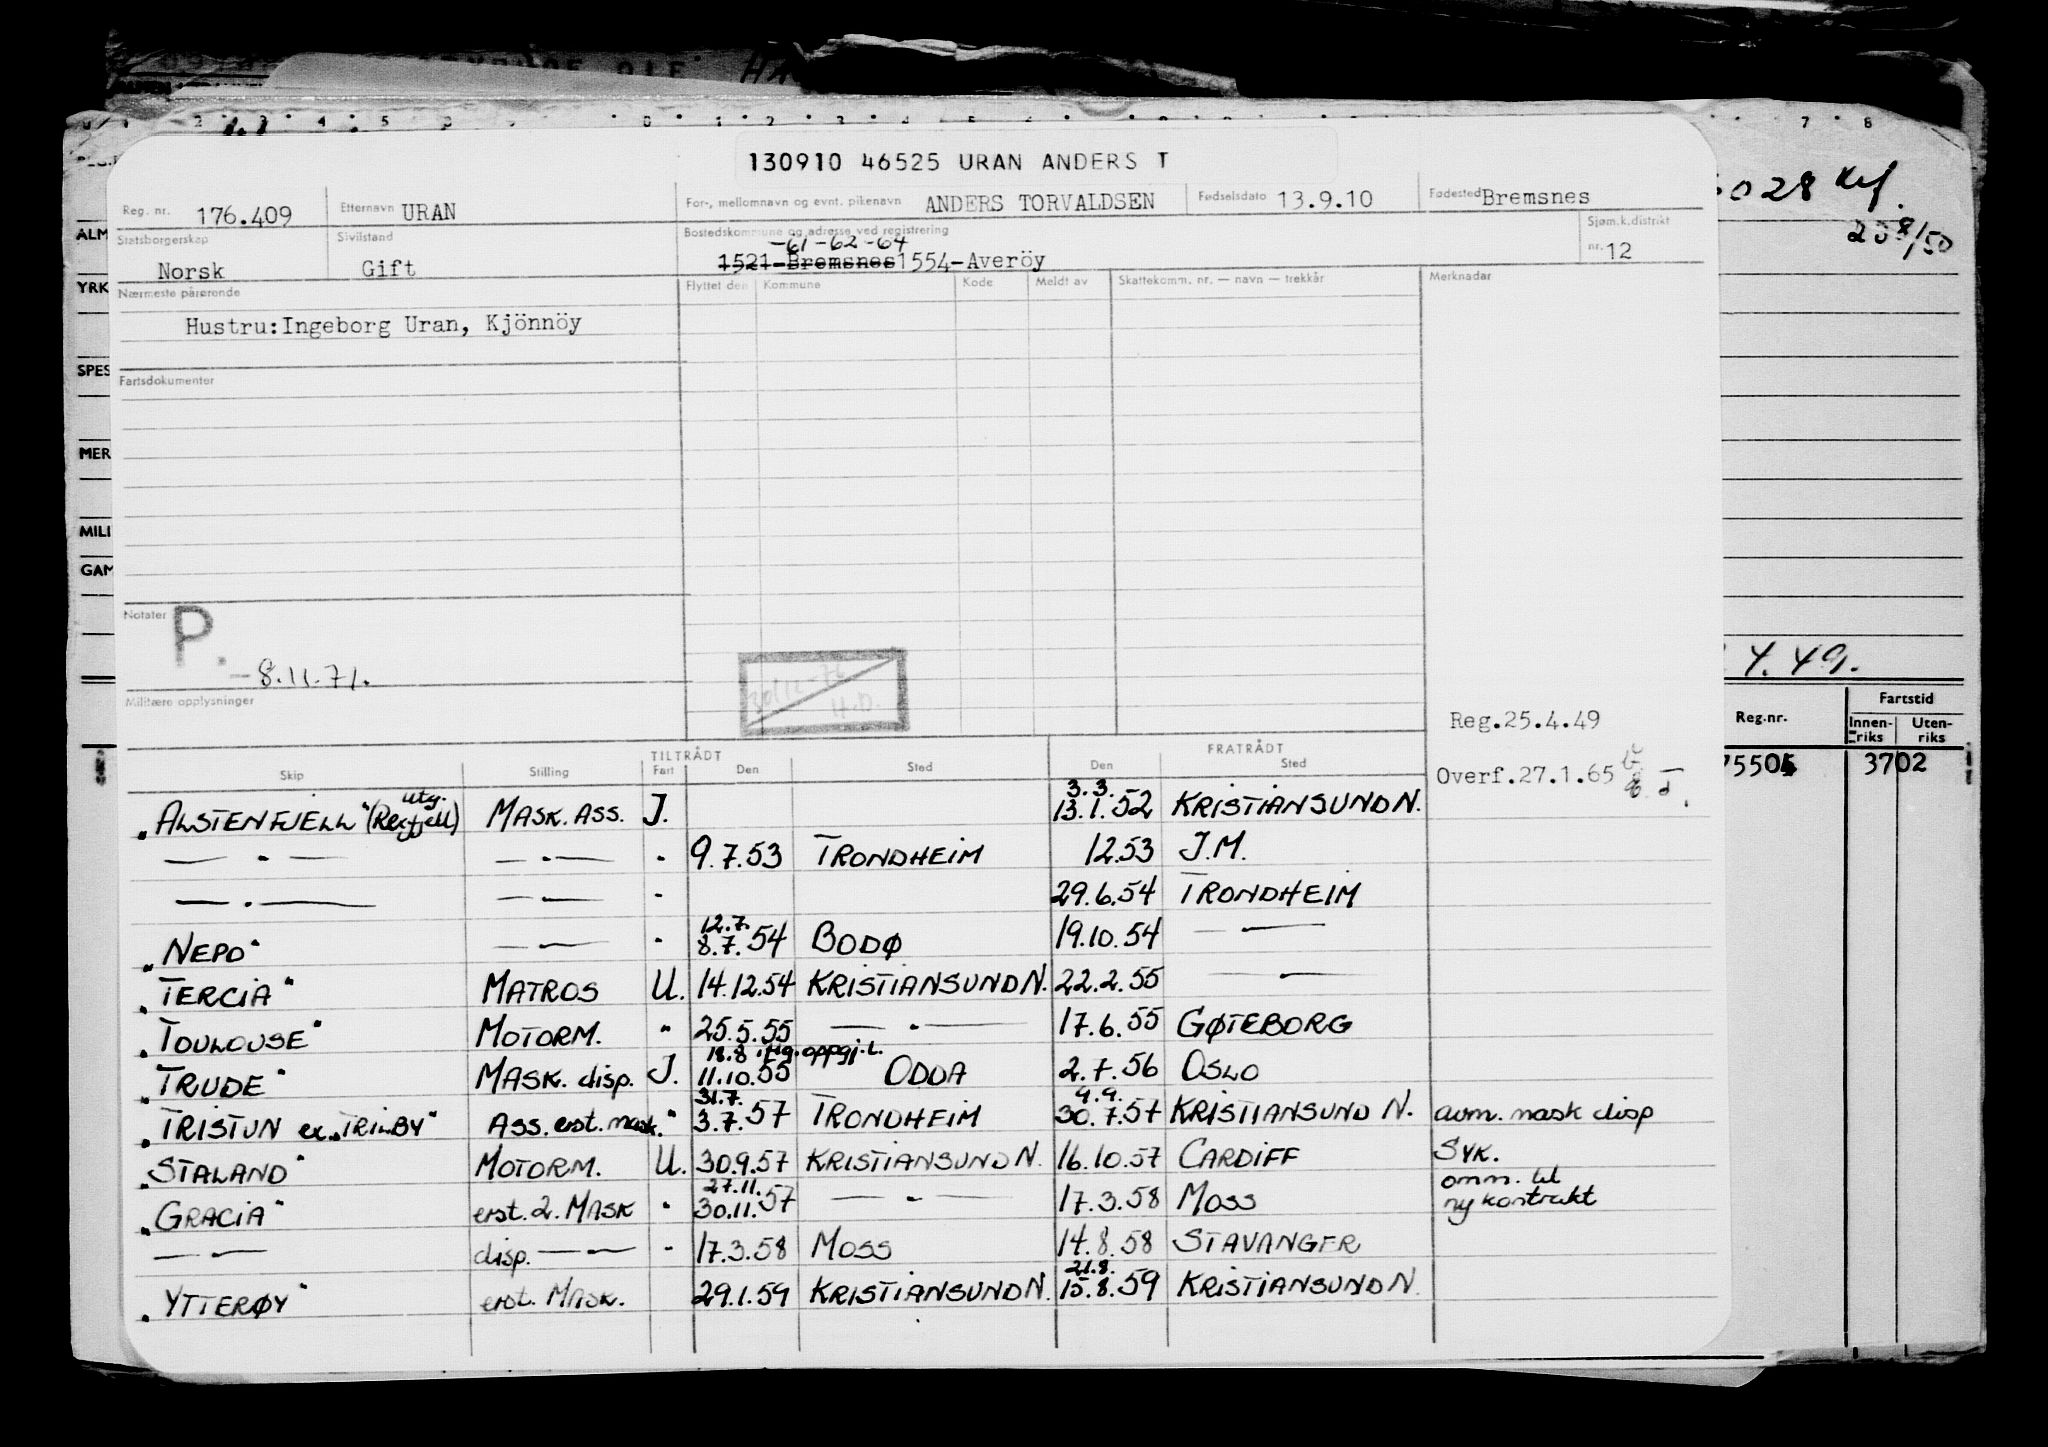 130910 46525 URAN ANDERS T
Reg. nr. 176.409 Etternavn URAN For-, mellomnavn og evnt. pikenavn ANDERS TORVALDSEN Fødselsdato 13.9.10 Fødested Bremsnes
Statsborgerskap Norsk Sivilstand Gift Bostedskommune og adresse ved registrering Sjøm.k.distrikt nr. 12
-61-62-64
1521-Bremsnes 1554-Averöy
Nærmeste pårørende Flyttet den Kommune Kode Meldt av Skattekomm. nr. — navn — trekkår Merknader
Hustru:Ingeborg Uran, Kjönnöy
Fartsdokumenter
Notater
P.
-8.11.71.
Militære opplysninger
H.D.
Reg.25.4.49
Overf.27.1.65
TILTRÅDT FRATRÅDT
Skip Stilling Fart Den Sted Den Sted
utg. 3.3.
"ALSTENFJELL" (Rekfjell) MASK. ASS. J. 13.1.52 KRISTIANSUND N.
— " — — " — " 9.7.53 TRONDHEIM 12.53 J.M.
— " — — " — " 29.6.54 TRONDHEIM
12.7.
"NEPO" — " — " 8.7.54 BODØ 19.10.54 — " —
"TERCIA" MATROS U. 14.12.54 KRISTIANSUND N. 22.2.55 — " —
"TOULOUSE" MOTORM. " 25.5.55 — " — 17.6.55 GØTEBORG
18.8 oppgj.
"TRUDE" MASK. disp. J. 11.10.55 ODDA 2.7.56 OSLO
31.7. 9.9.
"TRISTUN ex. "TRILBY" ASS. erst. mask. " 3.7.57 TRONDHEIM 30.7.57 KRISTIANSUND N. avm. mask disp
"STALAND" MOTORM. U. 30.9.57 KRISTIANSUND N. 16.10.57 CARDIFF SYK.
27.11. omm. til
"GRACIA" erst. 2. MASK " 30.11.57 — " — 17.3.58 MOSS ny kontrakt
— " — disp. — " — " 17.3.58 MOSS 14.8.58 STAVANGER
21.8.
"YTTERØY" erst. MASK. 29.1.59 KRISTIANSUND N. 15.8.59 KRISTIANSUND N.
ALM
YRK
SPES
MER
MILI
GAM
028
4.49.
Reg.nr. Fartstid
Innen-riks Uten-riks
3702